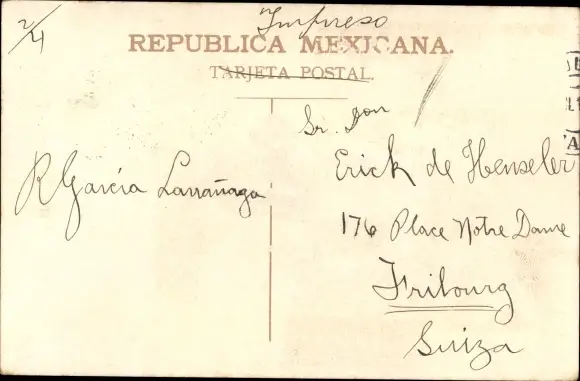 2/4
Impreso
REPUBLICA MEXICANA.
TARJETA POSTAL.
Sr. Don
Erick de Henseler
R García Larrañaga
176 Place Notre Dame
Fribourg
Suiza